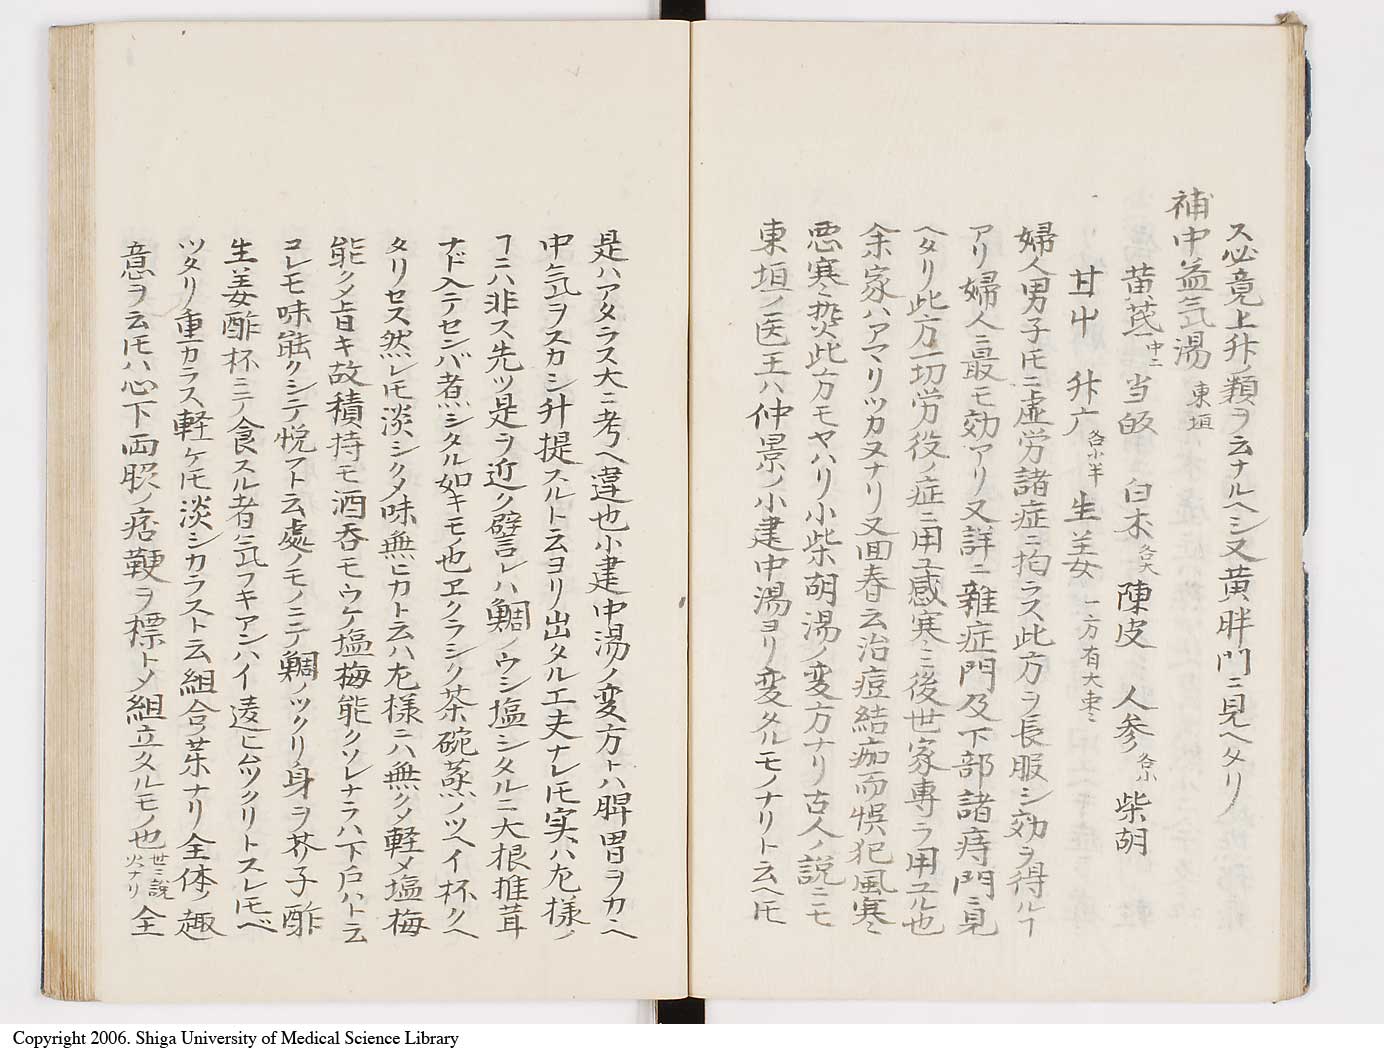 ス必竟上升ノ類ヲ云ナルヘシ又黄胖門ニ見ヘタリ
補中益気湯 東垣
黄芪中ニ 当皈 白朮各大 陳皮 人参各小 柴胡
甘艸 升广各小半 生姜 一方有大棗ミ
婦人男子𪜈ニ虚労諸症ニ拘ラス此方ヲ長服シ効ヲ得ルヿ
アリ婦人ニ最モ効アリ又詳ニ雑症門及下部諸痔門ニ見
ヘタリ此方一切労役ノ症ニ用ユ感寒ミニ後世家専ラ用ユル也
余家ハアマリツカヌナリ又回春云治瘧結痂而悞犯風寒ミ
悪寒ミ熱此方モヤハリ小柴胡湯ノ変方ナリ古人ノ説ニモ
東垣ノ医王ハ仲景ノ小建中湯ヨリ変タルモノナリト云ヘ𪜈
是ハアタラス大ニ考ヘ違也小建中湯ノ変方トハ脾胃ヲカヘ
中気ヲスカシ升提スルト云ヨリ出タル工夫ナレ𪜈実ハ左様ノ
ヿニハ非ス先ツ是ヲ近ク譬レハ鯛ノウシ塩シタルニ大根推茸
ナド入テセンバ煮シタル如キモ也ヱクラシク茶碗蒸ノツヘイ杯クヘ
タリセス然レ𪜈淡シクメ味無ヒカト云ハ左様ニハ無クメ軽メ塩梅
能クメ旨キ故積持モ酒呑モウケ塩梅能クツレナラハ下戸ハト云
コレモ味能クシテ悦フト云處ノモノミテ鯛ノツクリ身ヲ芥子酢
生姜酢杯ミテ食スル者ミ気フキアンハイ遠ヒムツクリトスレ𪜈ベ
ツタリ重カラス軽ケ𪜈淡シカラスト云組合ノ茱ナリ全体ノ趣
意ヲ云𪜈ハ心下両脇ノ痞鞕ヲ標トメ組立タルモノ也世ミ説火ナリ全